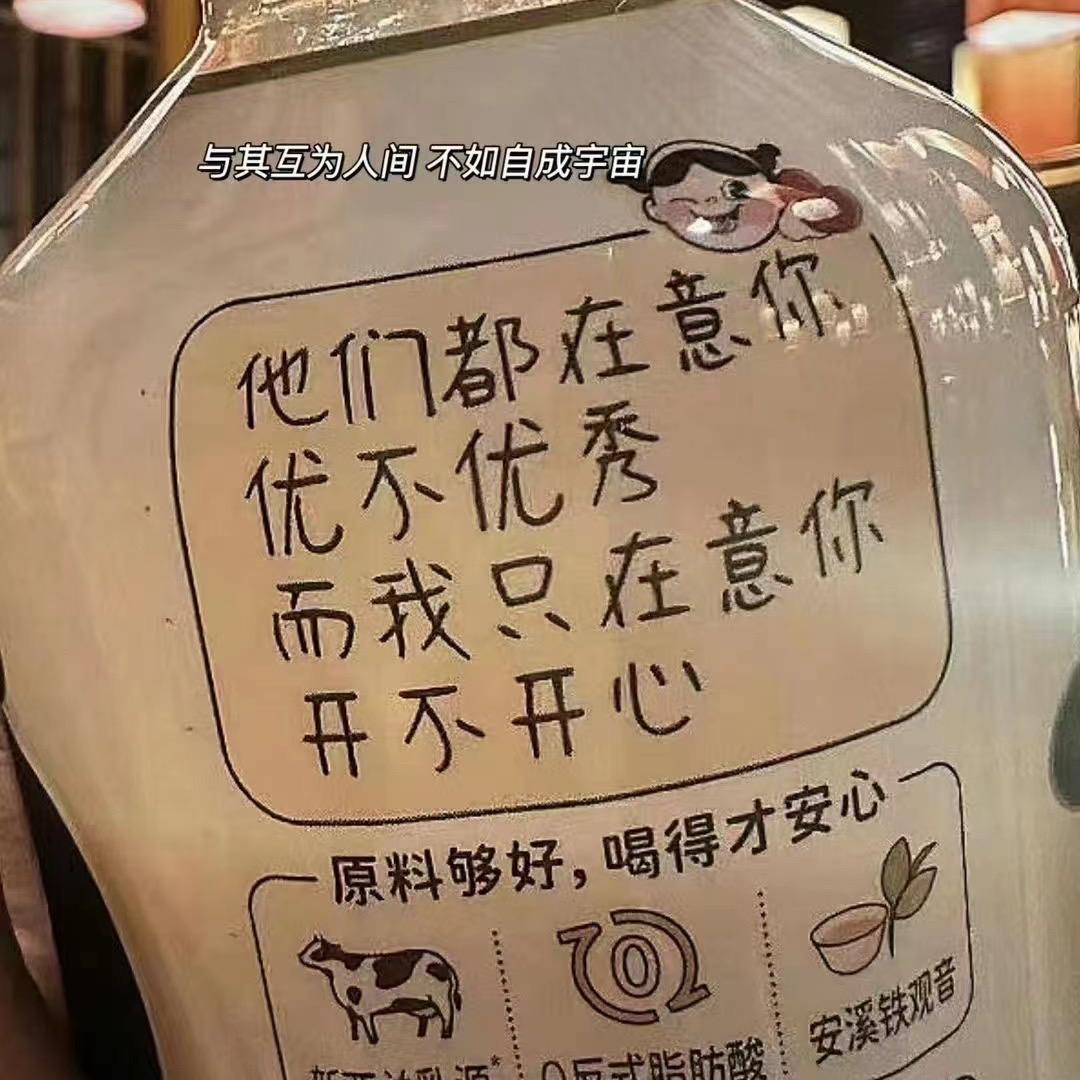 与其互为人间 不如自成宇宙
他们都在意你
优不优秀
而我只在意你
开不开心
原料够好，喝得才安心
新西兰乳源*
0反式脂肪酸
安溪铁观音